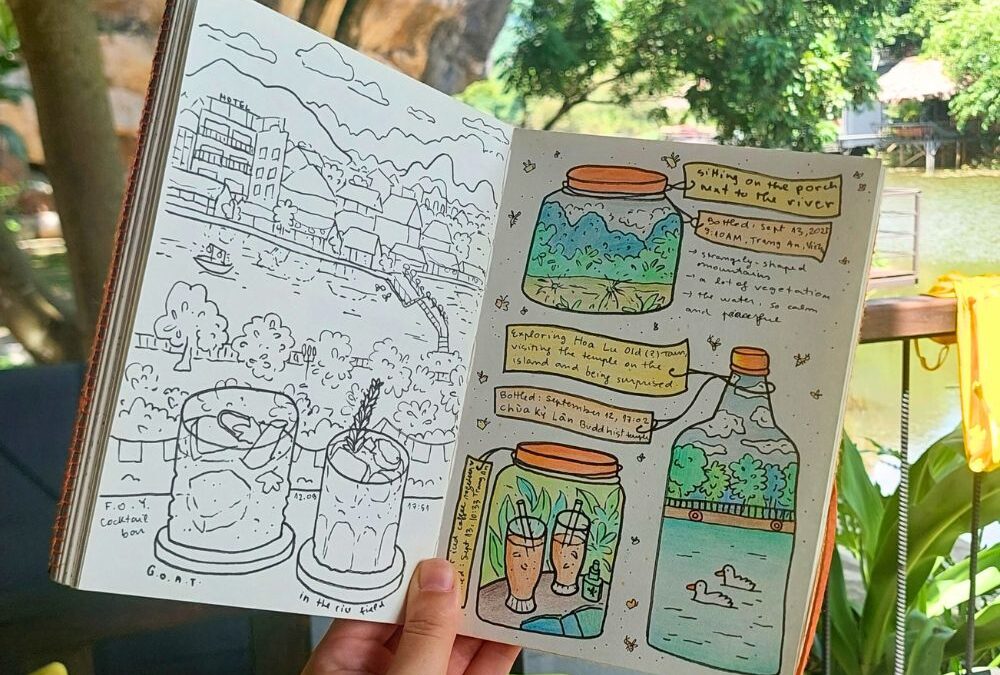 HOTEL
F.O.Y.
cocktail
bar
12.09
17:51
G.O.A.T.
in the rice field
sitting on the porch
next to the river
Bottled: Sept 13, 2025
9:10AM, Trang An,
→ strangely-shaped
mountains
→ a lot of vegetation
→ the water, so calm
and peaceful
Exploring Hoa Lu Old (?) Town,
visiting the temple on the
island and being surprised
Bottled: September 12, 17:02
chùa Kỳ Lân Buddhist temple
Iced coffee together
Sept 13, 10:33 Trang An